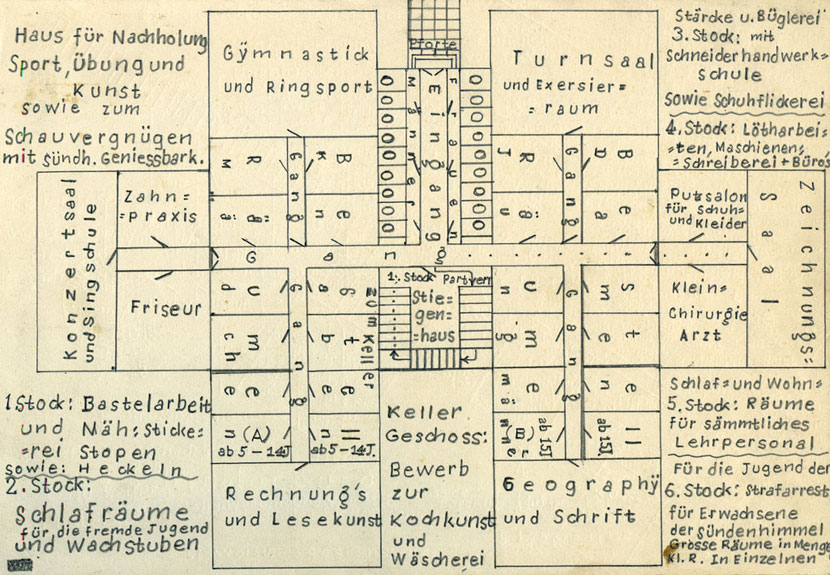 Haus für Nachholung
Sport, Übung und
Kunst
sowie zum
Schauvergnügen
mit sündh. Geniessbark.
Gÿmnastick
und Ringsport
Pforte
Eingang
Männer
Frauen
Turnsaal
und Exersier=
=raum
Stärcke u. Büglerei
3. Stock: mit
Schneiderhandwerk=
schule
Sowie Schuhflickerei
4. Stock: Lötharbei=
=ten, Maschienen=
=Schreiberei + Büro's
Konzertsaal
und Singschule
Zahn=
=praxis
Friseur
Gang
Gang
Gang
Gang
Gang
Mädchen
Räume (A)
ab 5-14J.
Knaben
ab 5-14J.
zum Keller
1. Stock
Partverr
Stie=
gen=
=haus
Jungmänner
Räume (B)
ab 15J.
ab 15J.
Putzsalon
für Schuh=
und Kleider
Klein=
Chirurgie
Arzt
Zeichnungs=
Saal
1. Stock: Bastelarbeit
und Näh=Sticke=
=rei Stopen
sowie: Heckeln
2. Stock:
Schlafräume
für die fremde Jugend
und Wachstuben
Rechnung's
und Lesekunst
Keller
Geschoss:
Bewerb
zur
Kochkunst
und
Wäscherei
Geographÿ
und Schrift
Schlaf= und Wohn=
5. Stock: Räume
für sämmtliches
Lehrpersonal
Für die Jugend der
6. Stock: Strafarrest
für Erwachsene
der Sündenhimmel
Grosse Räume in Menge
Kl. R. In Einzelnen